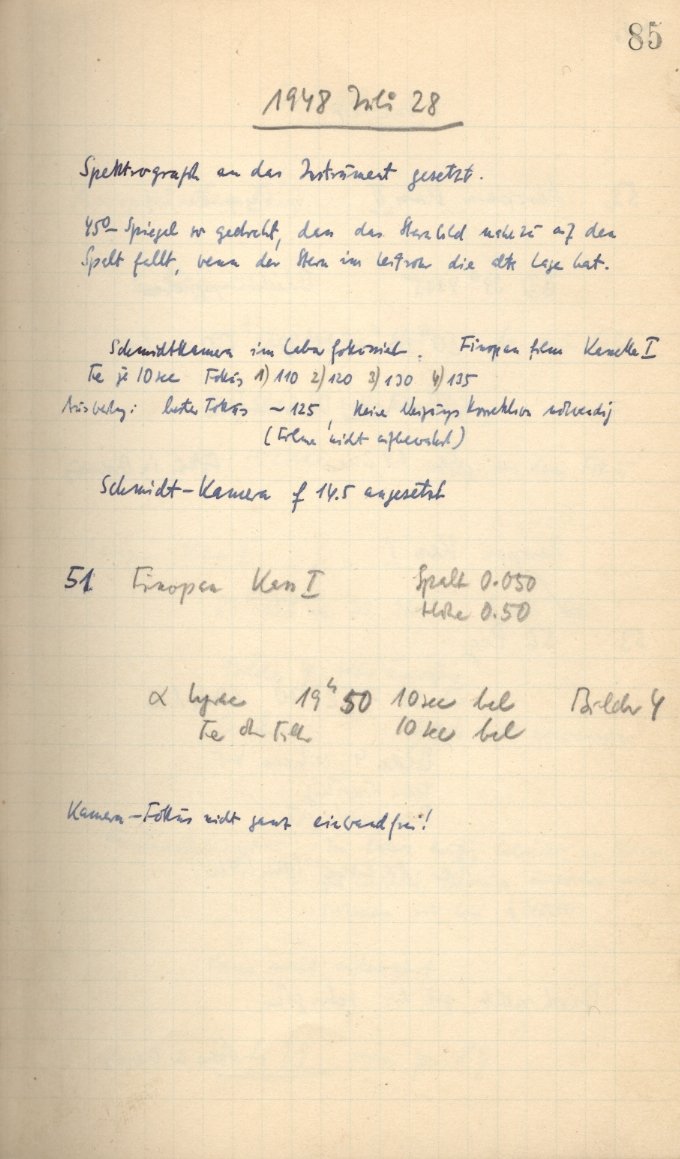 85
1948 Juli 28
Spektrograph an das Instrument gesetzt.
45°-Spiegel so gedreht, dass das Sternbild nahezu auf den
Spalt fällt, wenn der Stern im Leitrohr die alte Lage hat.
Schmidtkamera im Labor fokussiert. Finopan film Kassette I
Fe je 10 sec Fokus 1) 110 2) 120 3) 130 4) 135
bester Fokus ~ 125, keine Neigungs Korrektion notwendig
(Filme nicht aufbewahrt)
Schmidt-Kamera f 14.5 angesetzt
51 Finopan Kass I Spalt 0.050
Höhe 0.50
α Lyrae 19h 50 10 sec bel Bilder 4
Fe ohne Filter 10 sec bel
Kamera-Fokus nicht ganz einwandfrei!